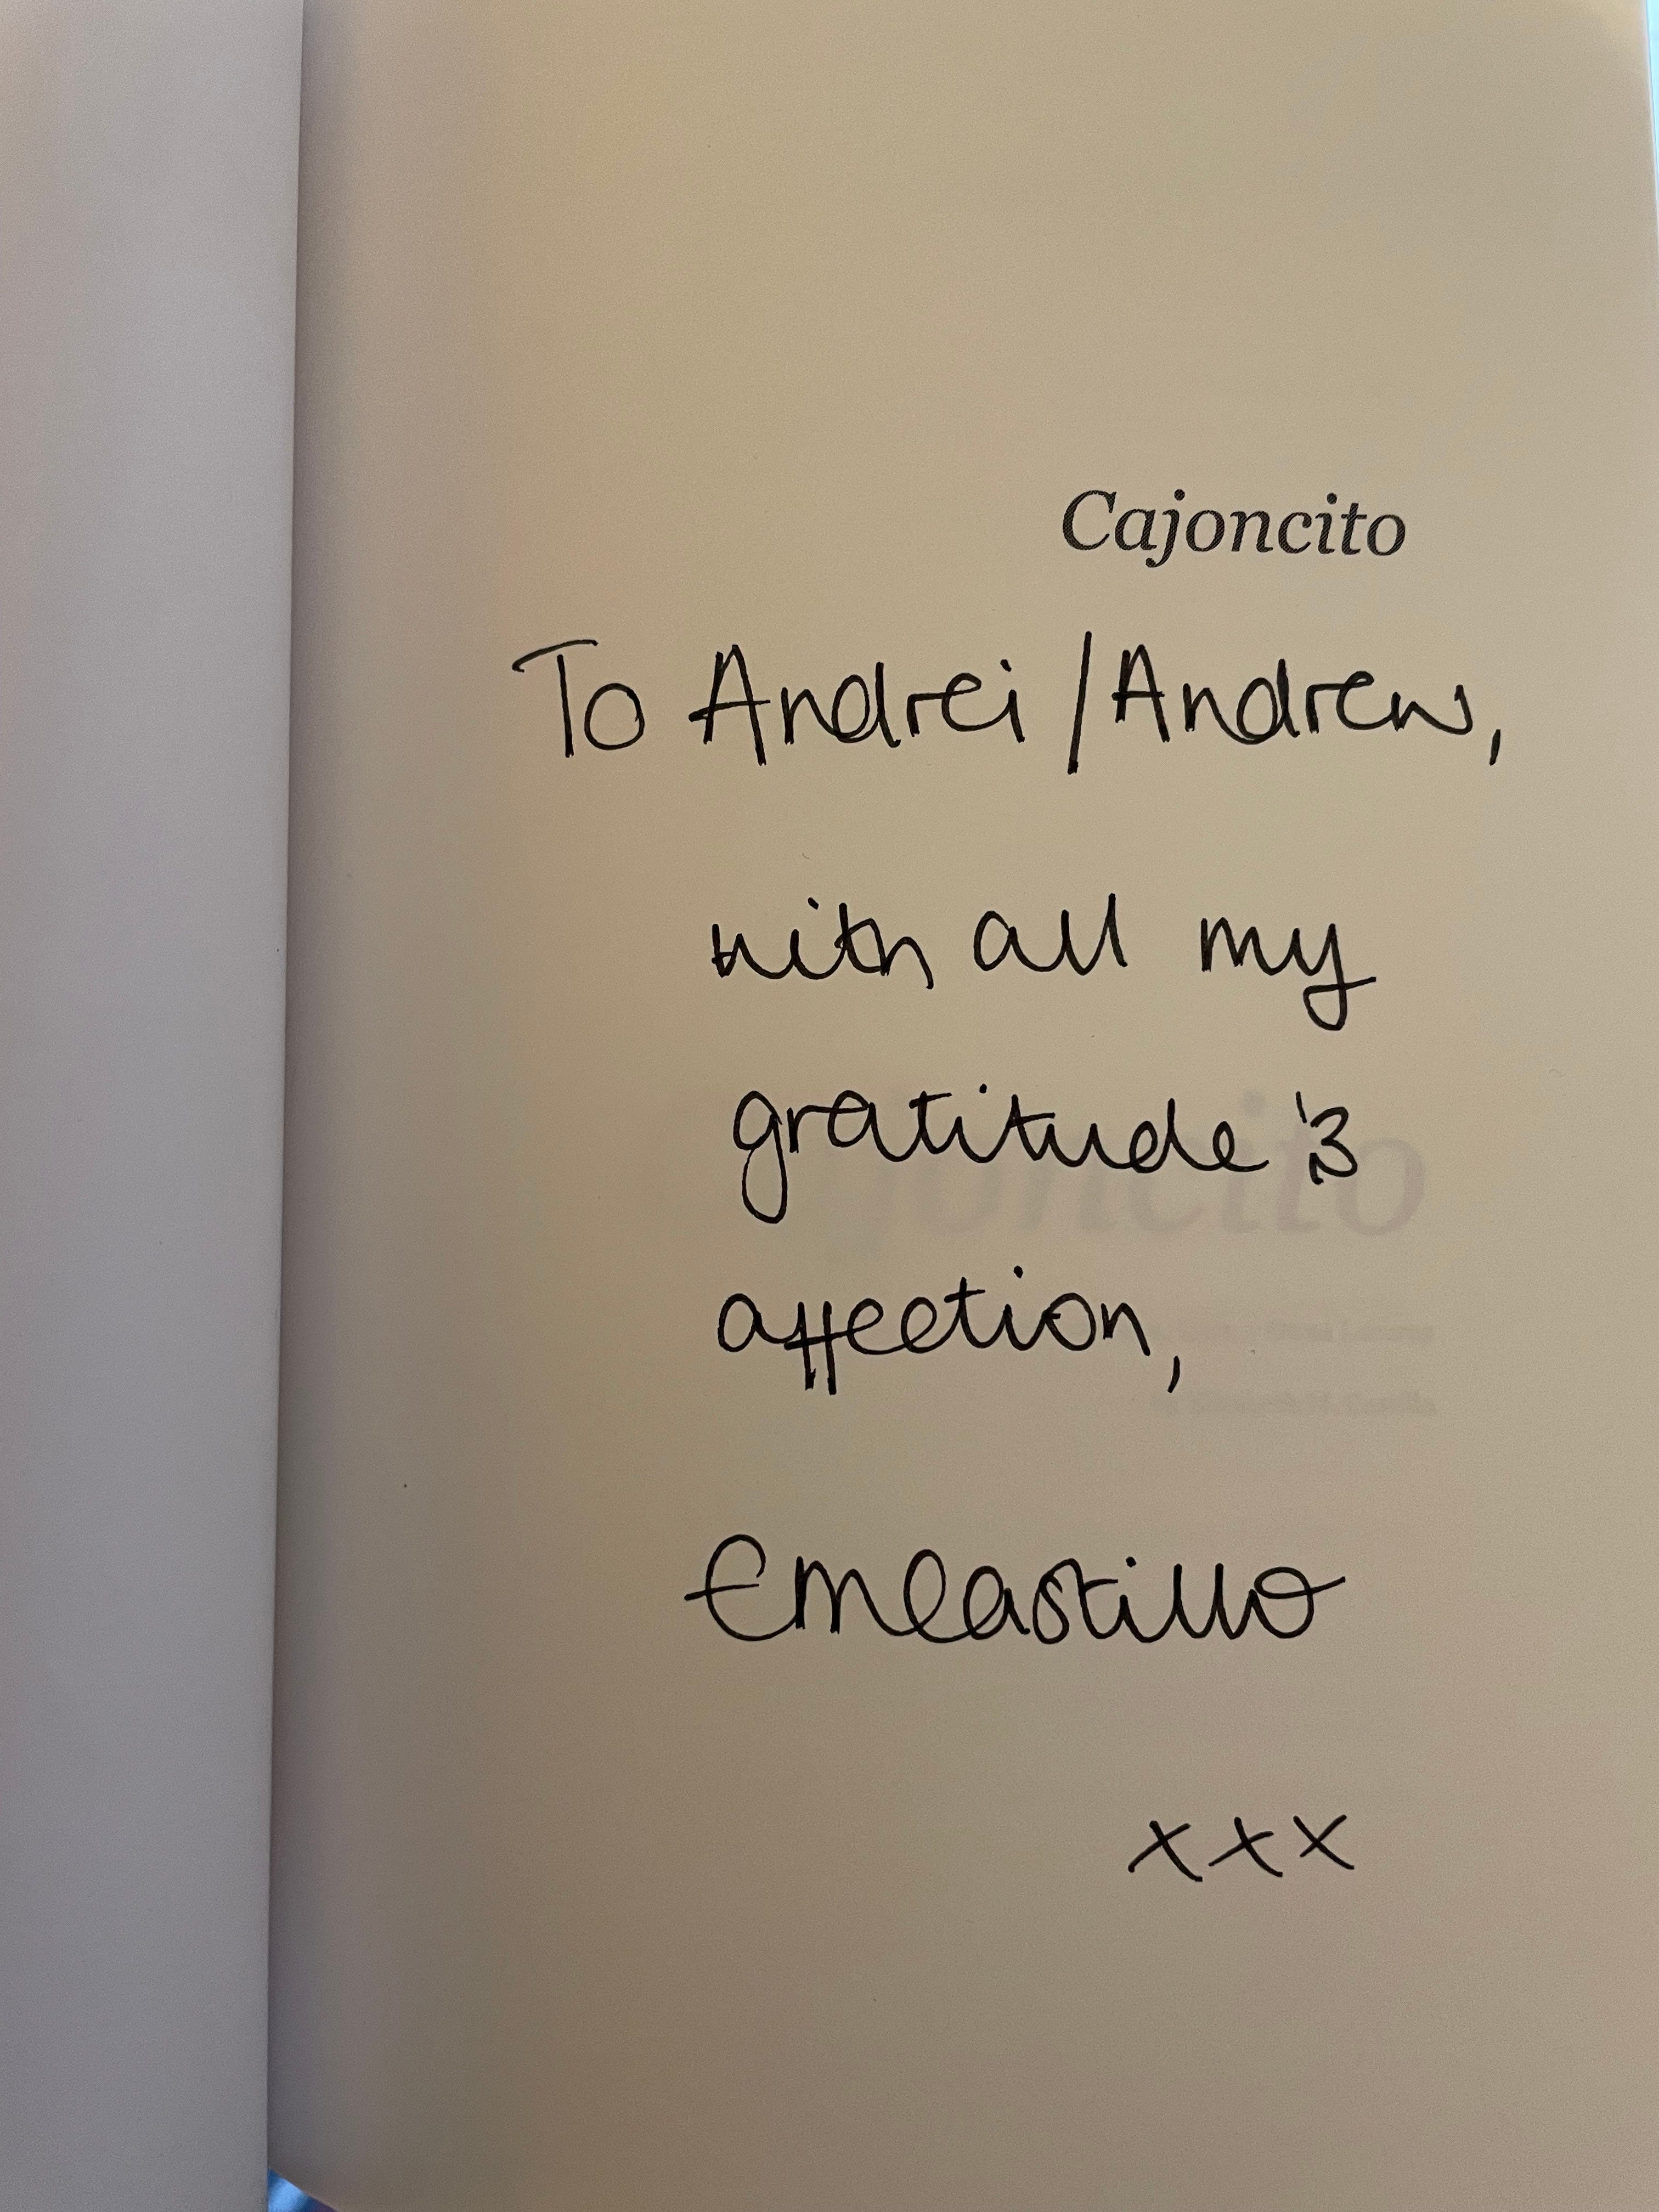 Cajoncito
To Andrei / Andrew,
with all my
gratitude &
affection,
EMCastillo
xxx